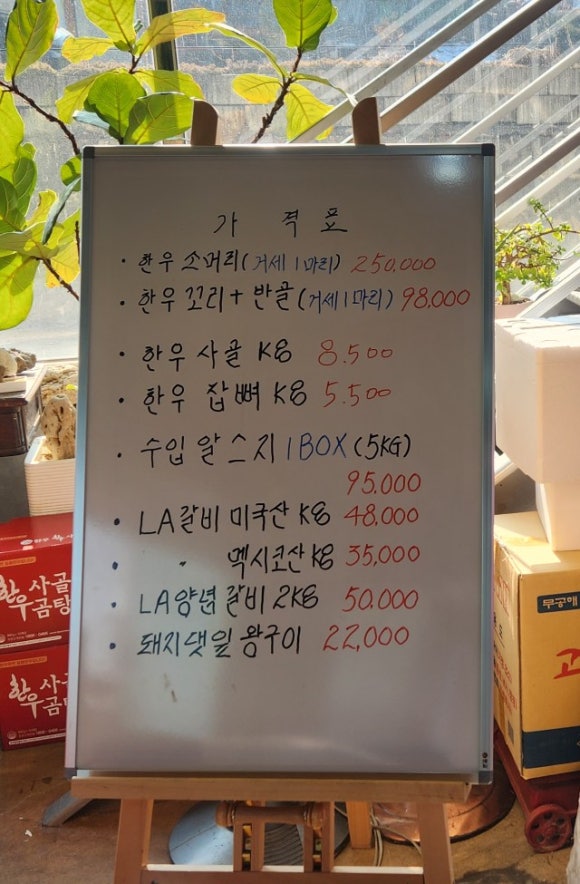 가 격 표
• 한우 소머리(거세1마리) 250,000
• 한우 꼬리+반골(거세1마리) 98,000
• 한우 사골 KG 8.500
• 한우 잡뼈 KG 5.500
• 수입 알스지 1BOX(5KG)
95.000
• LA갈비 미국산 KG 48,000
• " 멕시코산 KG 35,000
• LA양념갈비 2KG 50.000
• 돼지댓일 왕구이 22,000
한우 사골곰탕
한우 사골곰탕
무궁화
고